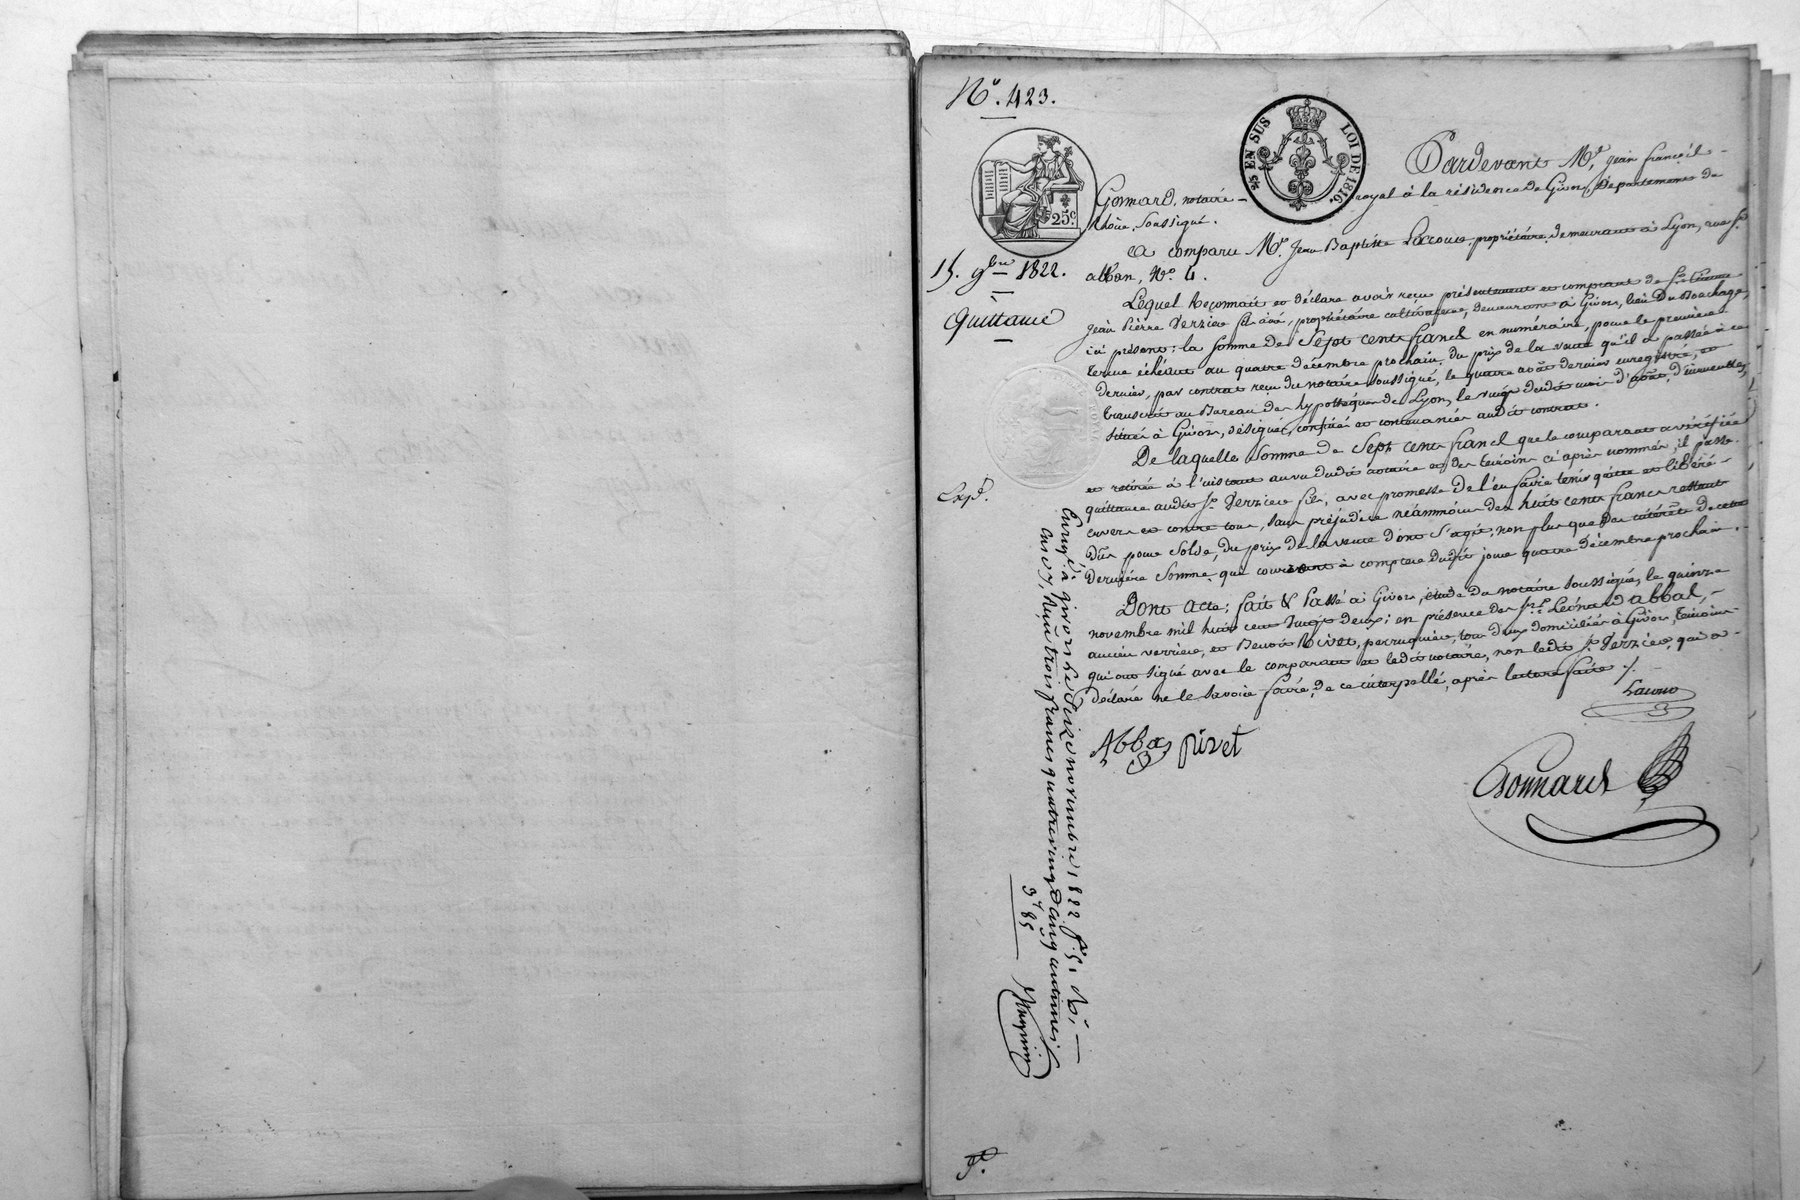 N.º 423.
25 c.
⅕ EN SUS LOI DE 1816.
15. 9bre 1822.
Quittance
Expd.
Pardevant Me. Jean françois
Gonnard, notaire royal à la résidence de Givors, Département du
Rhône, Soussigné.
A comparu Mr. Jean Baptiste propriétaire, demeurant à Lyon, rue St.
alban, No. 4.
Lequel Reconnait et déclare avoir reçu présentement et comptant de Sr.
jean Pierre Verzieu fils ainé, propriétaire cultivateur, demeurant à Givors, lieu du Bachage,
ici présent: la somme de Sept cents francs en numéraire, pour le premier
terme échéant au quatre décembre prochain, du prix de la vente qu'il a passée à ce
dernier, par contrat reçu du notaire soussigné, le quatre août dernier enregistré, et
transcrit au Bureau des hypothèques de Lyon, le vingt dudit mois d'août, d'immeubles,
situés à Givors, désignés, confinés et contenancés audit contrat.
De laquelle Somme de Sept cents francs que le comparant a vérifiée
et retirée à l'instant au vu dudit notaire et des témoins ci après nommés, il passe
quittance audit Sr. Verzieu fils, avec promesse de l'en faire tenir quitte et libéré
envers et contre tous, sans préjudice néanmoins des huit cents francs restant
dûs pour Solde, du prix de la vente dont s'agit, non plus que des intérêts de cette
dernière Somme, qui courront à compter dudit jour quatre décembre prochain.
Dont acte; fait & Passé à Givors, étude du notaire soussigné, le quinze
novembre mil huit cent vingt deux; en présence des Srs. Léonard abbal,
ancien verrier, et Benoit Rivet, perruquier, tous deux domiciliés à Givors, témoins
qui ont signé avec le comparant et ledit notaire, non ledit Sr. Verzieu, qui a
déclaré ne le Savoir faire, de ce interpellé, après lecture faite ./.
Abbal Rivet
Gonnard
Enregé. à givors le Seize novembre 1822 fo. 51 Ro.
Cases 7, Reçu trois francs quatre vingt cinq centimes
3f 85